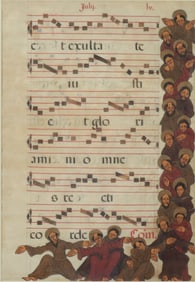 et exulta te
iu sti
et glo ri
ami ni o mne
s re cti
co rde